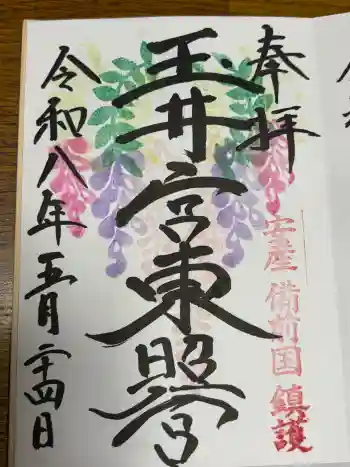 奉拝
安産 備前国 鎮護
玉井宮東照宮
令和八年五月二十四日